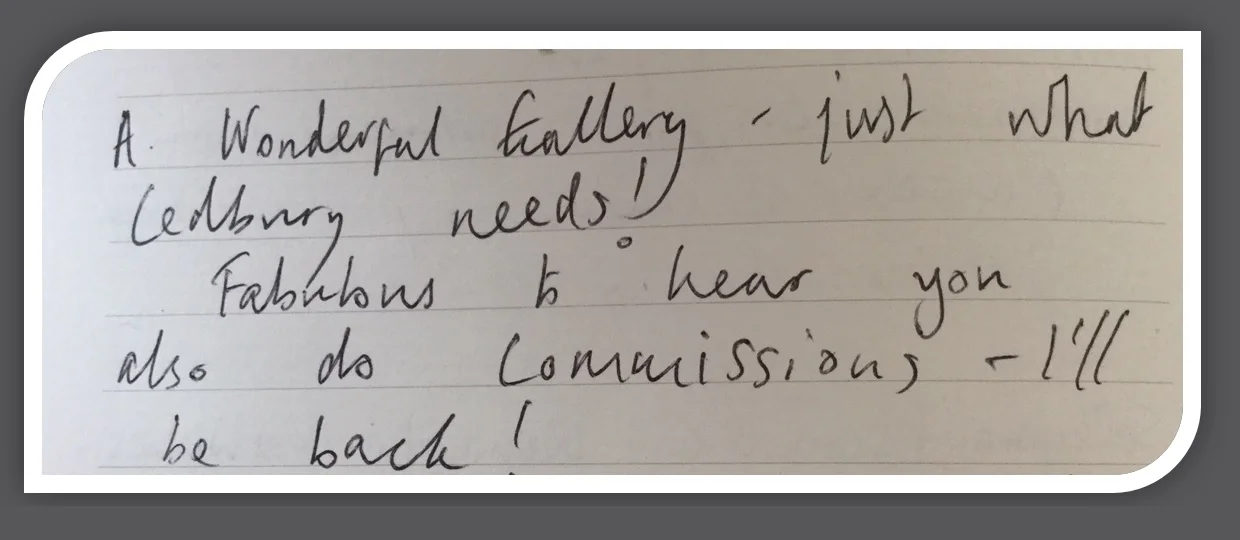 A. Wonderful Gallery - just what
Ledbury needs!
Fabulous to hear you
also do Commissions - I'll
be back!